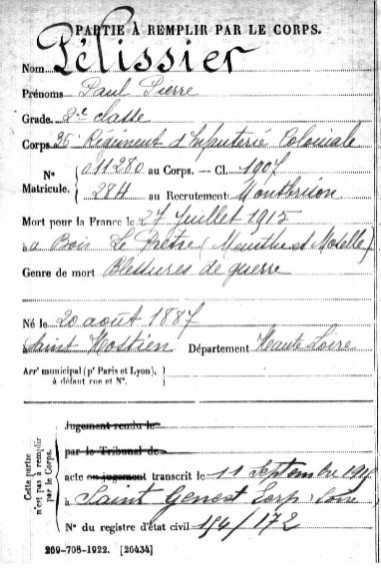 PARTIE À REMPLIR PAR LE CORPS.
Nom Pélissier
Prénoms Paul Pierre
Grade 2e classe
Corps 36e Régiment d'Infanterie Coloniale
N° Matricule. { 011280 au Corps. — Cl. 1907
284 au Recrutement Montbrison
Mort pour la France le 27 Juillet 1915
a Bois Le Prêtre (Meurthe et Moselle)
Genre de mort Blessures de guerre
Né le 20 août 1887
Saint Département Haute Loire
Arrt municipal (pr Paris et Lyon), à défaut rue et N°. }
Cette partie n'est pas à remplir par le Corps.
Jugement rendu le
par le Tribunal de
acte ou jugement transcrit le 11 Septembre 191
à Saint Genest Lerp (Loire)
N° du registre d'état civil 154/172
269-708-1922. [26434]